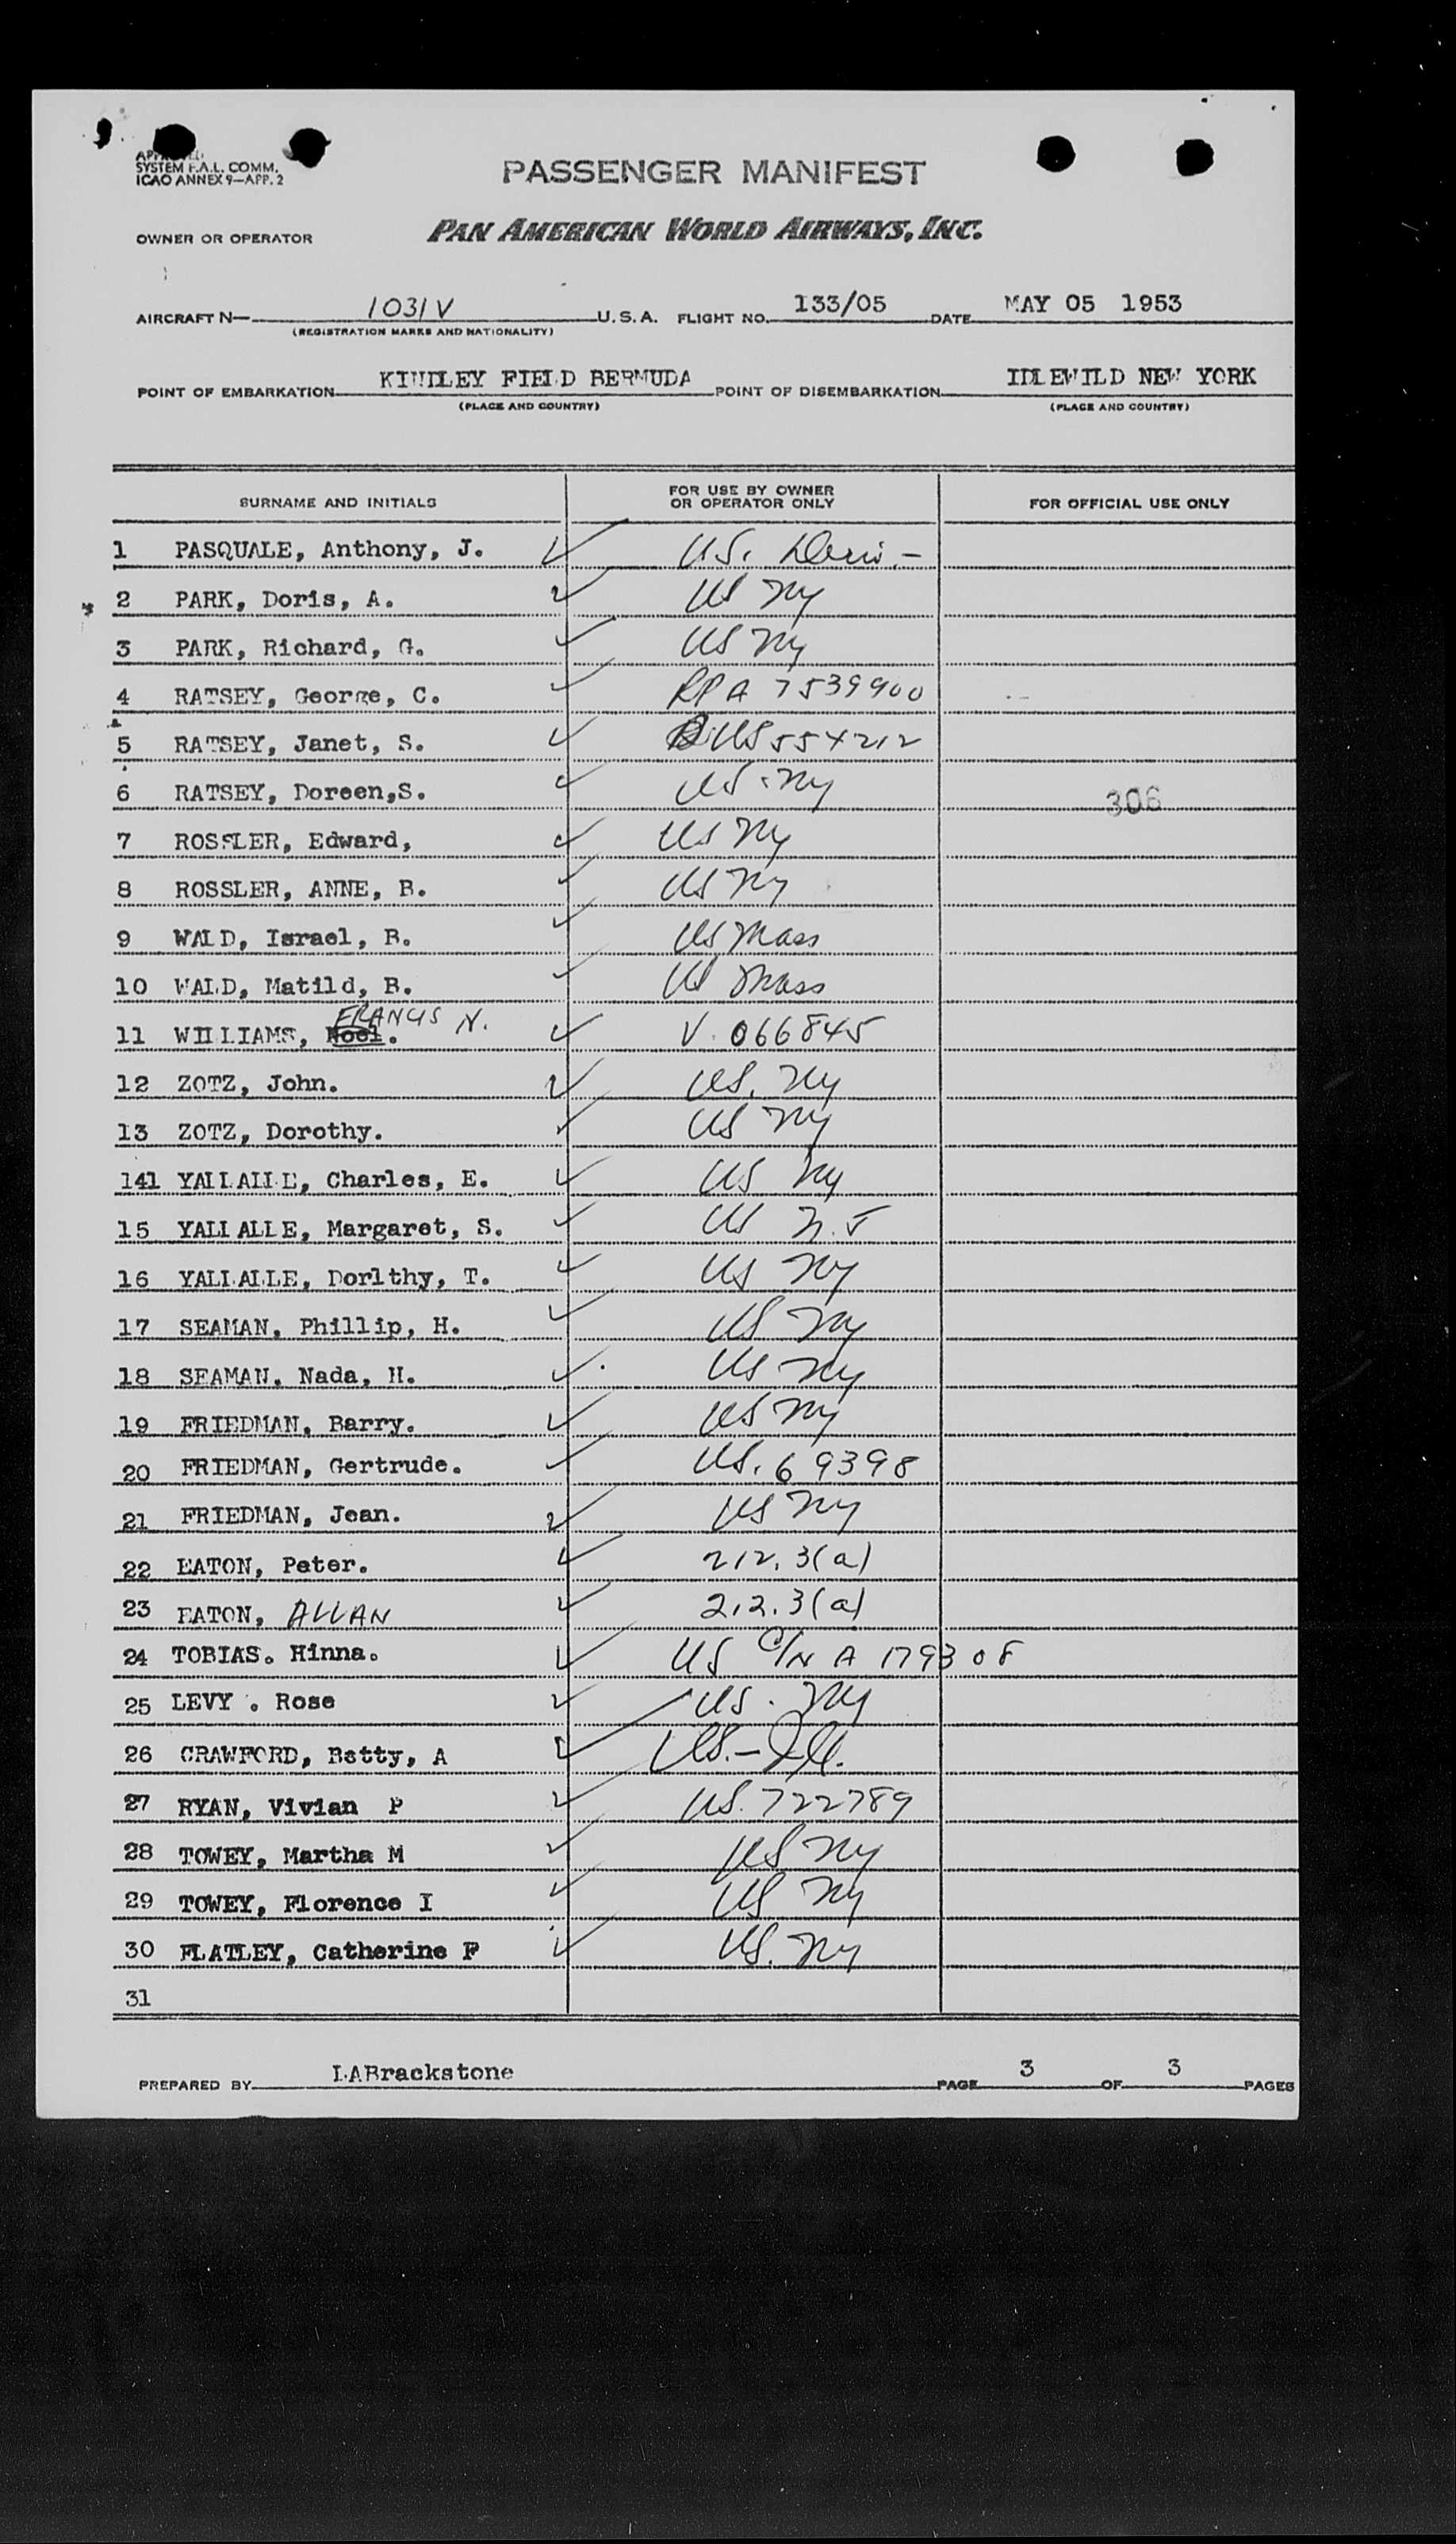 SYSTEM F.A.L. COMM.
ICAO ANNEX 9—APP. 2
PASSENGER MANIFEST
OWNER OR OPERATOR PAN AMERICAN WORLD AIRWAYS, INC.
AIRCRAFT N— 1031V U.S.A. FLIGHT NO. 133/05 DATE MAY 05 1953
(REGISTRATION MARKS AND NATIONALITY)
POINT OF EMBARKATION KINDLEY FIELD BERMUDA POINT OF DISEMBARKATION IDLEWILD NEW YORK
(PLACE AND COUNTRY) (PLACE AND COUNTRY)
SURNAME AND INITIALS FOR USE BY OWNER OR OPERATOR ONLY FOR OFFICIAL USE ONLY
1 PASQUALE, Anthony, J. ✓ US.
2 PARK, Doris, A. ✓ US NY
3 PARK, Richard, G. ✓ US NY
4 RATSEY, George, C. ✓ RPA 7539900
5 RATSEY, Janet, S. ✓ US 554212
6 RATSEY, Doreen,S. ✓ US. NY 306
7 ROSSLER, Edward, ✓ US NY
8 ROSSLER, ANNE, B. ✓ US NY
9 WALD, Israel, B. ✓ US Mass
10 WALD, Matild, B. ✓ US Mass
11 WILLIAMS, Noel. FRANCIS N. ✓ V. 066845
12 ZOTZ, John. ✓ US. NY
13 ZOTZ, Dorothy. ✓ US NY
141 YALLALLE, Charles, E. ✓ US NY
15 YALLALLE, Margaret, S. ✓ US N.J
16 YALLALLE, Dorlthy, T. ✓ US NY
17 SEAMAN, Phillip, H. ✓ US NY
18 SEAMAN. Nada, H. ✓ US NY
19 FRIEDMAN, Barry. ✓ US NY
20 FRIEDMAN, Gertrude. ✓ US. 69398
21 FRIEDMAN, Jean. ✓ US NY
22 EATON, Peter. ✓ 212.3(a)
23 EATON, ALLAN ✓ 212.3(a)
24 TOBIAS. Hinna. ✓ US C/N A 179308
25 LEVY . Rose ✓ US. NY
26 CRAWFORD, Betty, A ✓ US.— Ill.
27 RYAN, Vivian P ✓ US. 722789
28 TOWEY, Martha M ✓ US NY
29 TOWEY, Florence I ✓ US NY
30 FLATLEY, Catherine F ✓ US. NY
31
PREPARED BY LABrackstone PAGE 3 OF 3 PAGES